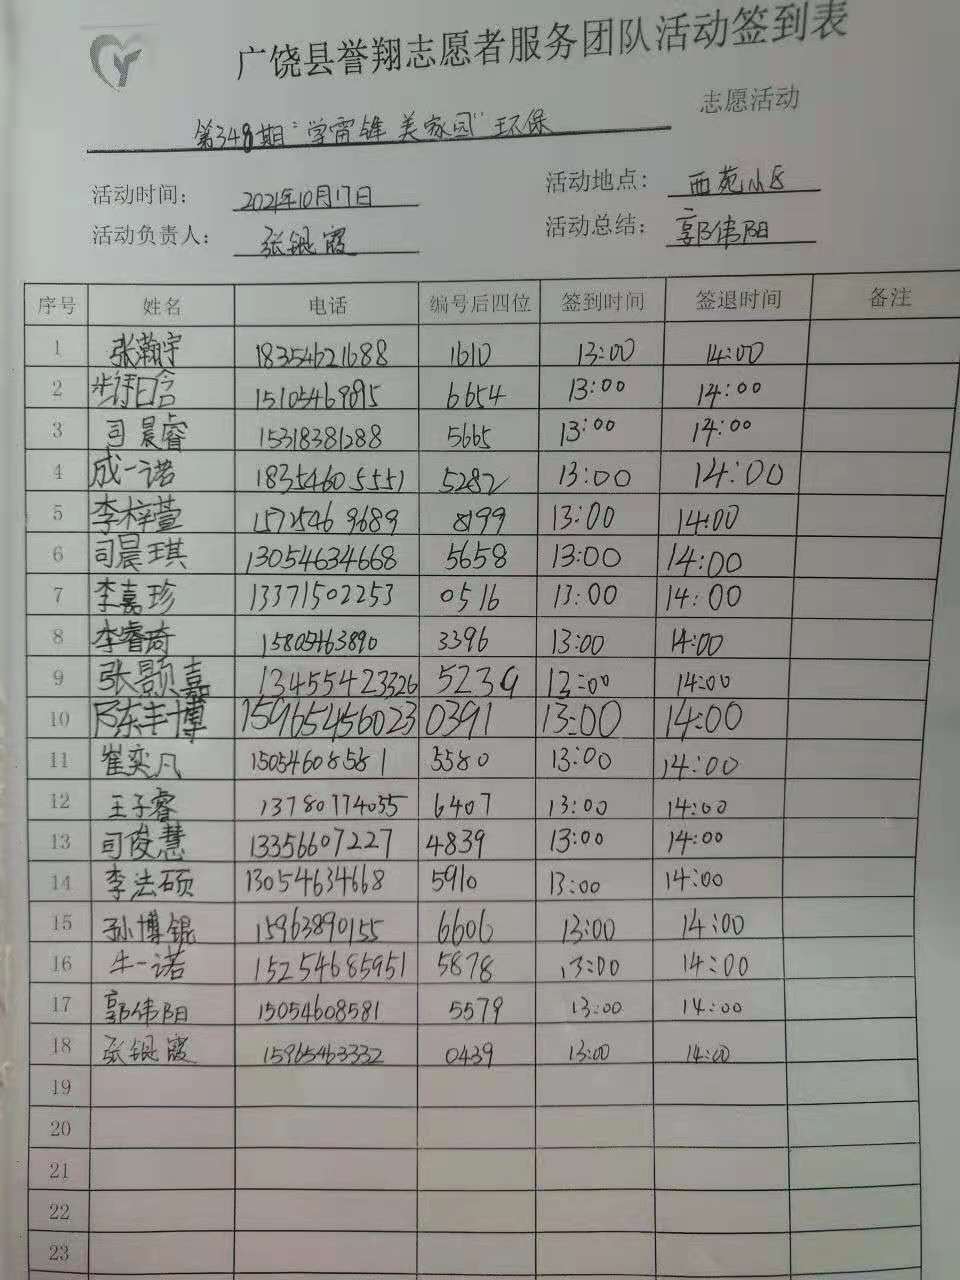 广饶县誉翔志愿者服务团队活动签到表
第348期"学雷锋 美家园"环保 志愿活动
活动时间: 2021年10月17日 活动地点: 西苑小区
活动负责人: 张银霞 活动总结: 郭伟阳
序号 姓名 电话 编号后四位 签到时间 签退时间 备注
1 张瀚宇 18354621688 1610 13:00 14:00
2 15105469895 6654 13:00 14:00
3 司晨睿 15318381288 5665 13:00 14:00
4 成一诺 18354605551 5282 13:00 14:00
5 李梓萱 15725469689 8199 13:00 14:00
6 司晨琪 13054634668 5658 13:00 14:00
7 李嘉珍 13371502253 0516 13:00 14:00
8 李睿琦 15805463890 3396 13:00 14:00
9 张颢嘉 13455423326 5239 13:00 14:00
10 陈丰博 15965456023 0391 13:00 14:00
11 崔奕凡 15054608581 5580 13:00 14:00
12 王子睿 13780774055 6407 13:00 14:00
13 司俊慧 13356607227 4839 13:00 14:00
14 李法硕 13054634668 5910 13:00 14:00
15 孙博锟 15963890155 6606 13:00 14:00
16 牛一诺 15254685951 5878 13:00 14:00
17 郭伟阳 15054608581 5579 13:00 14:00
18 张银霞 15965463332 0439 13:00 14:00
19
20
21
22
23